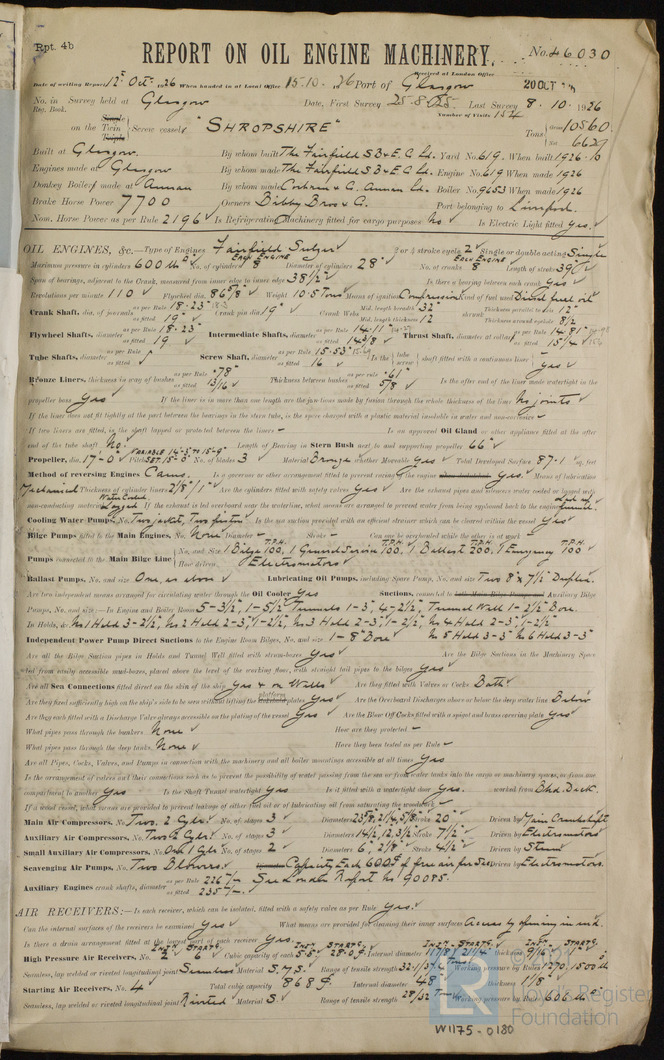 Rpt. 4b
REPORT ON OIL ENGINE MACHINERY.
No. 46030
Received at London Office
20 OCT
Date of writing Report 12th Oct. 1926 When handed in at Local Office 15.10.26 Port of Glasgow
No. in Reg. Book. Survey held at Glasgow Date, First Survey 25.8.25 Last Survey 8.10.1926
Number of Visits 154
on the Single Twin Triple Screw vessel "SHROPSHIRE" Tons Gross 10560 Net 6629
Built at Glasgow. By whom built The Fairfield S.B. & E. C. Ld. Yard No. 619. When built 1926.10
Engines made at Glasgow By whom made The Fairfield S.B. & E. C. Ld. Engine No. 619 When made 1926
Donkey Boilers made at Annan By whom made Cochran & Co. Annan Ld. Boiler No. 9653 When made 1926
Brake Horse Power 7700 Owners Bibby Bros & Co. Port belonging to Liverpool.
Nom. Horse Power as per Rule 2196 Is Refrigerating Machinery fitted for cargo purposes No Is Electric Light fitted Yes.
OIL ENGINES, &c.—Type of Engines Fairfield Sulzer 2 or 4 stroke cycle 2 Single or double acting Single
Maximum pressure in cylinders 600 lbs No. of cylinders EACH ENGINE 8 Diameter of cylinders 28" No. of cranks EACH ENGINE 8 Length of stroke 39"
Span of bearings, adjacent to the Crank, measured from inner edge to inner edge 38 1/2" Is there a bearing between each crank Yes
Revolutions per minute 110 Flywheel dia. 86 5/8" Weight 10.5 Tons Means of ignition Compression Kind of fuel used Diesel fuel oil
Crank Shaft, dia. of journals as per Rule 18.23" as fitted 19" Crank pin dia. 19" Crank Webs Mid. length breadth 32" Mid. length thickness 12" shrunk Thickness parallel to axis 12" Thickness around eyehole 8 1/2
Flywheel Shafts, diameter as per Rule 18.23" as fitted 19 Intermediate Shafts, diameter as per Rule 14.11" as fitted 14 3/8 Thrust Shaft, diameter at collars as per Rule 14.81" as fitted 15 1/4
Tube Shafts, diameter as per Rule as fitted Screw Shaft, diameter as per Rule 15.53" as fitted 16 Is the tube screw shaft fitted with a continuous liner Yes
Bronze Liners, thickness in way of bushes as per Rule .78" as fitted 13/16 Thickness between bushes as per rule .61" as fitted 5/8 Is the after end of the liner made watertight in the
propeller boss Yes If the liner is in more than one length are the junctions made by fusion through the whole thickness of the liner No joints
If the liner does not fit tightly at the part between the bearings in the stern tube, is the space charged with a plastic material insoluble in water and non-corrosive -
If two liners are fitted, is the shaft lapped or protected between the liners - Is an approved Oil Gland or other appliance fitted at the after
end of the tube shaft No. Length of Bearing in Stern Bush next to and supporting propeller 66"
Propeller, dia. 17'-0" Pitch VARIABLE 14'-5" TO 15'-9" SET 15'-0" No. of blades 3 Material Bronze whether Moveable Yes Total Developed Surface 87.1 sq. feet
Method of reversing Engines Cams. Is a governor or other arrangement fitted to prevent racing of the engine Yes. Means of lubrication
Mechanical Thickness of cylinder liners 2 1/8", 1" Are the cylinders fitted with safety valves Yes Are the exhaust pipes and silencers water cooled or lagged with
non-conducting material Water Cooled Lagged If the exhaust is led overboard near the waterline, what means are arranged to prevent water from being syphoned back to the engine Led up funnel.
Cooling Water Pumps, No. Two jacket, Two piston Is the sea suction provided with an efficient strainer which can be cleared within the vessel Yes
Bilge Pumps fitted to the Main Engines, No. None Diameter - Stroke - Can one be overhauled while the other is at work -
Pumps connected to the Main Bilge Line No. and Size 1 Bilge T.P.H. 100, 1 General Service T.P.H. 100, 1 Ballast T.P.H. 200, 1 Emergency T.P.H. 100
How driven Electromotors
Ballast Pumps, No. and size One, as above Lubricating Oil Pumps, including Spare Pump, No. and size Two 8" x 7 1/2" Duplex.
Are two independent means arranged for circulating water through the Oil Cooler Yes Suctions, connected to both Main Bilge Pumps and Auxiliary Bilge
Pumps, No. and size:—In Engine and Boiler Room 5-3 1/2", 1-5 1/2" Tunnels 1-3", 4-2 1/2", Tunnel Well 1-2 1/2" Bore.
In Holds, &c. No 1 Hold 3-2 1/2", No 2 Hold 2-3", 1-2 1/2", No 3 Hold 2-3", 1-2 1/2", No 4 Hold 2-3", 1-2 1/2"
Independent Power Pump Direct Suctions to the Engine Room Bilges, No. and size 1-8" Bore No 5 Hold 3-3" No 6 Hold 3-3"
Are all the Bilge Suction pipes in Holds and Tunnel Well fitted with strum-boxes Yes Are the Bilge Suctions in the Machinery Space
led from easily accessible mud-boxes, placed above the level of the working floor, with straight tail pipes to the bilges Yes
Are all Sea Connections fitted direct on the skin of the ship Yes & on Wells Are they fitted with Valves or Cocks Both
Are they fixed sufficiently high on the ship's side to be seen without lifting the platform plates Yes Are the Overboard Discharges above or below the deep water line Below
Are they each fitted with a Discharge Valve always accessible on the plating of the vessel Yes Are the Blow Off Cocks fitted with a spigot and brass covering plate Yes
What pipes pass through the bunkers None How are they protected -
What pipes pass through the deep tanks None Have they been tested as per Rule -
Are all Pipes, Cocks, Valves, and Pumps in connection with the machinery and all boiler mountings accessible at all times Yes
Is the arrangement of valves and their connections such as to prevent the possibility of water passing from the sea or from water tanks into the cargo or machinery spaces, or from one
compartment to another Yes Is the Shaft Tunnel watertight Yes Is it fitted with a watertight door Yes. worked from Bhd. Deck.
If a wood vessel, what means are provided to prevent leakage of either fuel oil or of lubricating oil from saturating the woodwork -
Main Air Compressors, No. Two, 2 Cylrs. No. of stages 3 Diameters 23 5/8, 21 1/4, 5 1/8 Stroke 20" Driven by Main Crankshaft
Auxiliary Air Compressors, No. Two 2 Cylrs. No. of stages 3 Diameters 14 1/2, 12, 3 1/2" Stroke 7 1/2" Driven by Electromotors
Small Auxiliary Air Compressors, No. One 1 Cylr No. of stages 2 Diameters 6", 2 1/8" Stroke 4 1/2" Driven by Steam
Scavenging Air Pumps, No. Two Blowers. Capacity Each 600 of free air per Sec Driven by Electromotors.
Auxiliary Engines crank shafts, diameter as per Rule 226 as fitted 235 See London Report No 90085.
AIR RECEIVERS:—Is each receiver, which can be isolated, fitted with a safety valve as per Rule Yes.
Can the internal surfaces of the receivers be examined Yes What means are provided for cleaning their inner surfaces Access by opening in end.
Is there a drain arrangement fitted at the lowest part of each receiver Yes.
High Pressure Air Receivers, No. INJN. 2 STARTG. 6 Cubic capacity of each INJN. 5.8 STARTG. 28.0 Internal diameter INJN. 11 7/8 STARTG. 21 1/4" thickness INJN. 9/16 STARTG. 1 1/2
Seamless, lap welded or riveted longitudinal joint Seamless Material S.M.S. Range of tensile strength 32-1/37.6 Tons Working pressure by Rules 1270, 1500 lb
Starting Air Receivers, No. 4 Total cubic capacity 868 Internal diameter 48" thickness 1 1/8"
Seamless, lap welded or riveted longitudinal joint Riveted Material S Range of tensile strength 28/32 Tons Working pressure by Rules 606 lb
© 2021
LR
Lloyd's Register
Foundation
W1175-0180